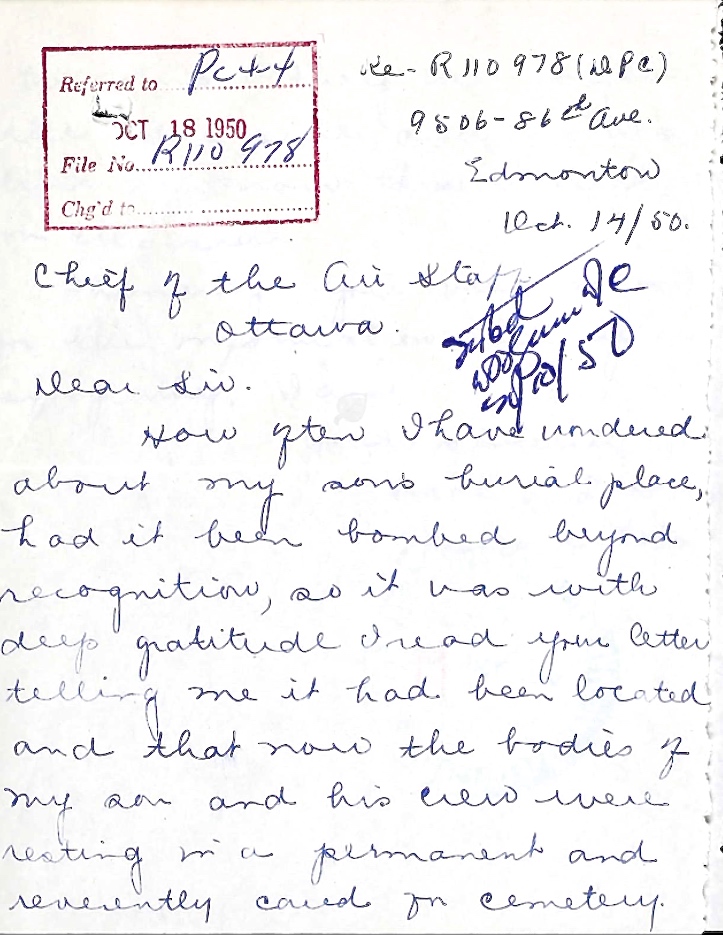 Referred to Pc4-4
OCT 18 1950
File No. R110978
Chg'd to
Re- R110978 (DPC)
9506-86th Ave.
Edmonton
Oct. 14/50.
Chief of the Air Staff
Ottawa.
Dear Sir.
How often I have wondered
about my sons burial place,
had it been bombed beyond
recognition, so it was with
deep gratitude I read your letter
telling me it had been located
and that now the bodies of
my son and his crew were
resting in a permanent and
reverently cared for cemetery.